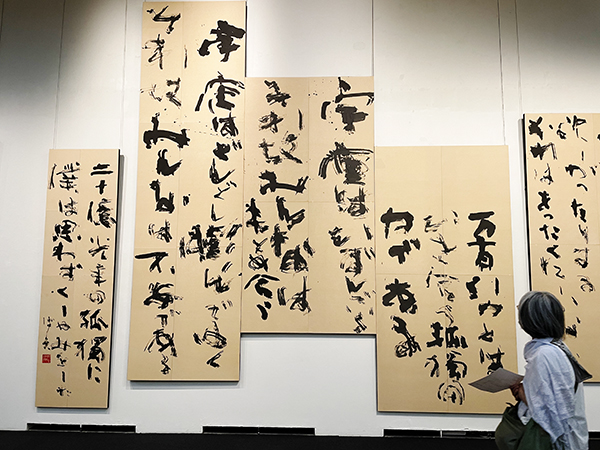 しがったりする
それはまったくた
万有引力とは
ひき合う孤独の
力である
宇宙はひずんでいる
それ故みんなはもとめ合う
宇宙はどんどん膨んでゆく
それ故みんなは不安である
二十億光年の孤独に
僕は思わずくしゃみをした